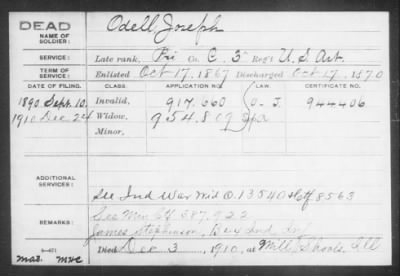 DEAD
NAME OF SOLDIER: Odell, Joseph
SERVICE: Late rank, Pri Co. C, 3" Reg't U.S. Art.
TERM OF SERVICE: Enlisted Oct 17, 1867 Discharged Oct 17, 1870
DATE OF FILING. CLASS. APPLICATION NO. LAW. CERTIFICATE NO.
1890 Sept. 10, Invalid, 917,660 O.J. 944406
1910 Dec 24 Widow, 954.809
Minor,
ADDITIONAL SERVICES:
See Ind War Wid O. 13540 Ctf 8563
REMARKS: See Min Ctf 687,922
James Stephenson, Ind Inf
Died Dec 3, 1910, at Mill Shoals, Ill